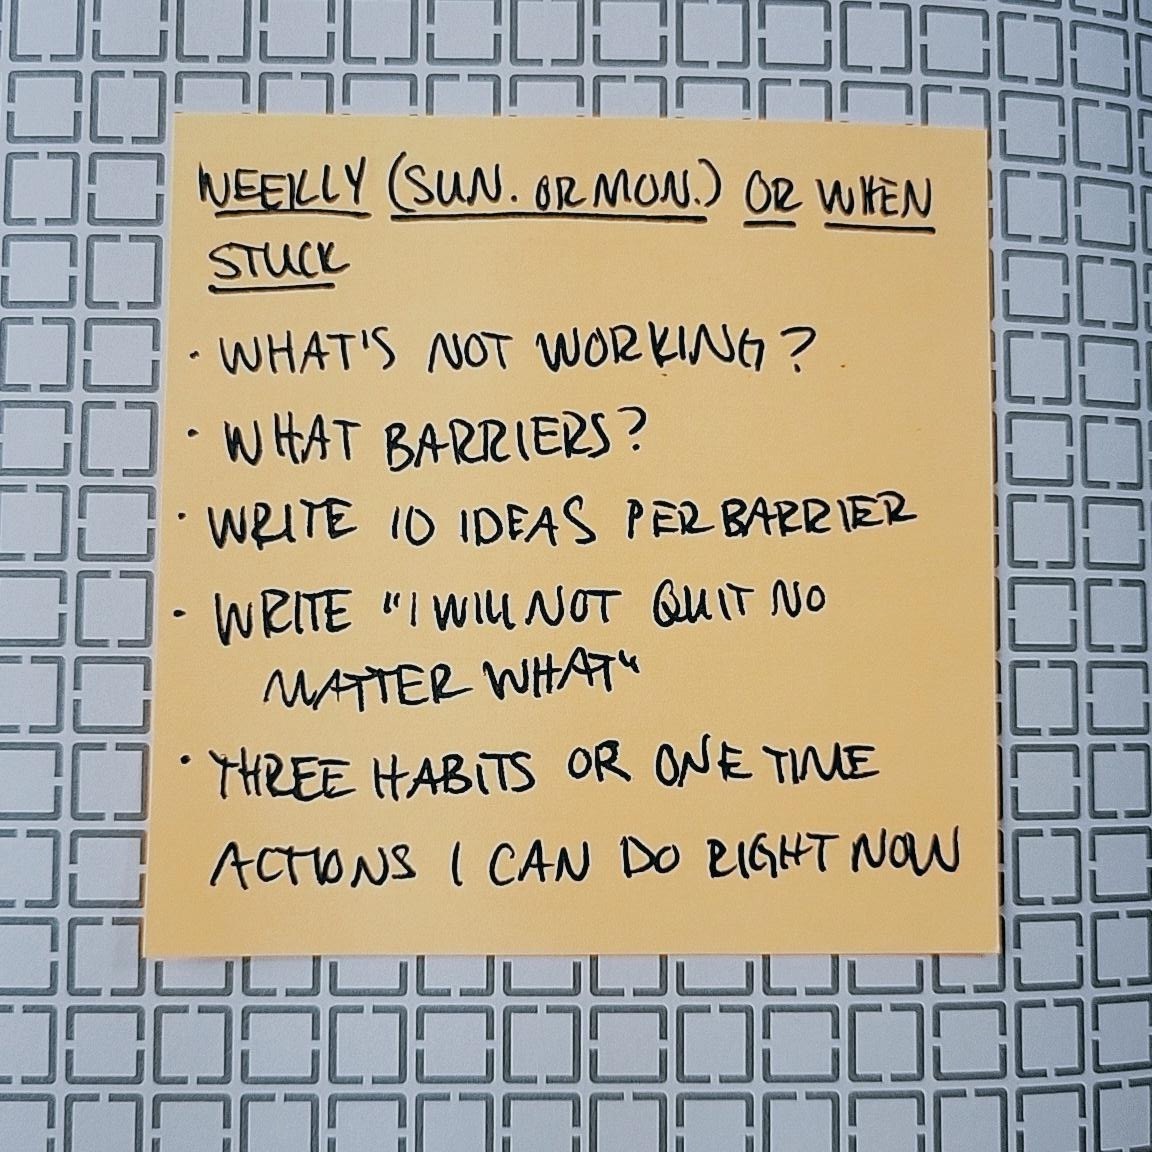 WEEKLY (SUN. OR MON.) OR WHEN
STUCK
· WHAT'S NOT WORKING?
· WHAT BARRIERS?
· WRITE 10 IDEAS PER BARRIER
· WRITE "I WILL NOT QUIT NO
MATTER WHAT"
· THREE HABITS OR ONE TIME
ACTIONS I CAN DO RIGHT NOW